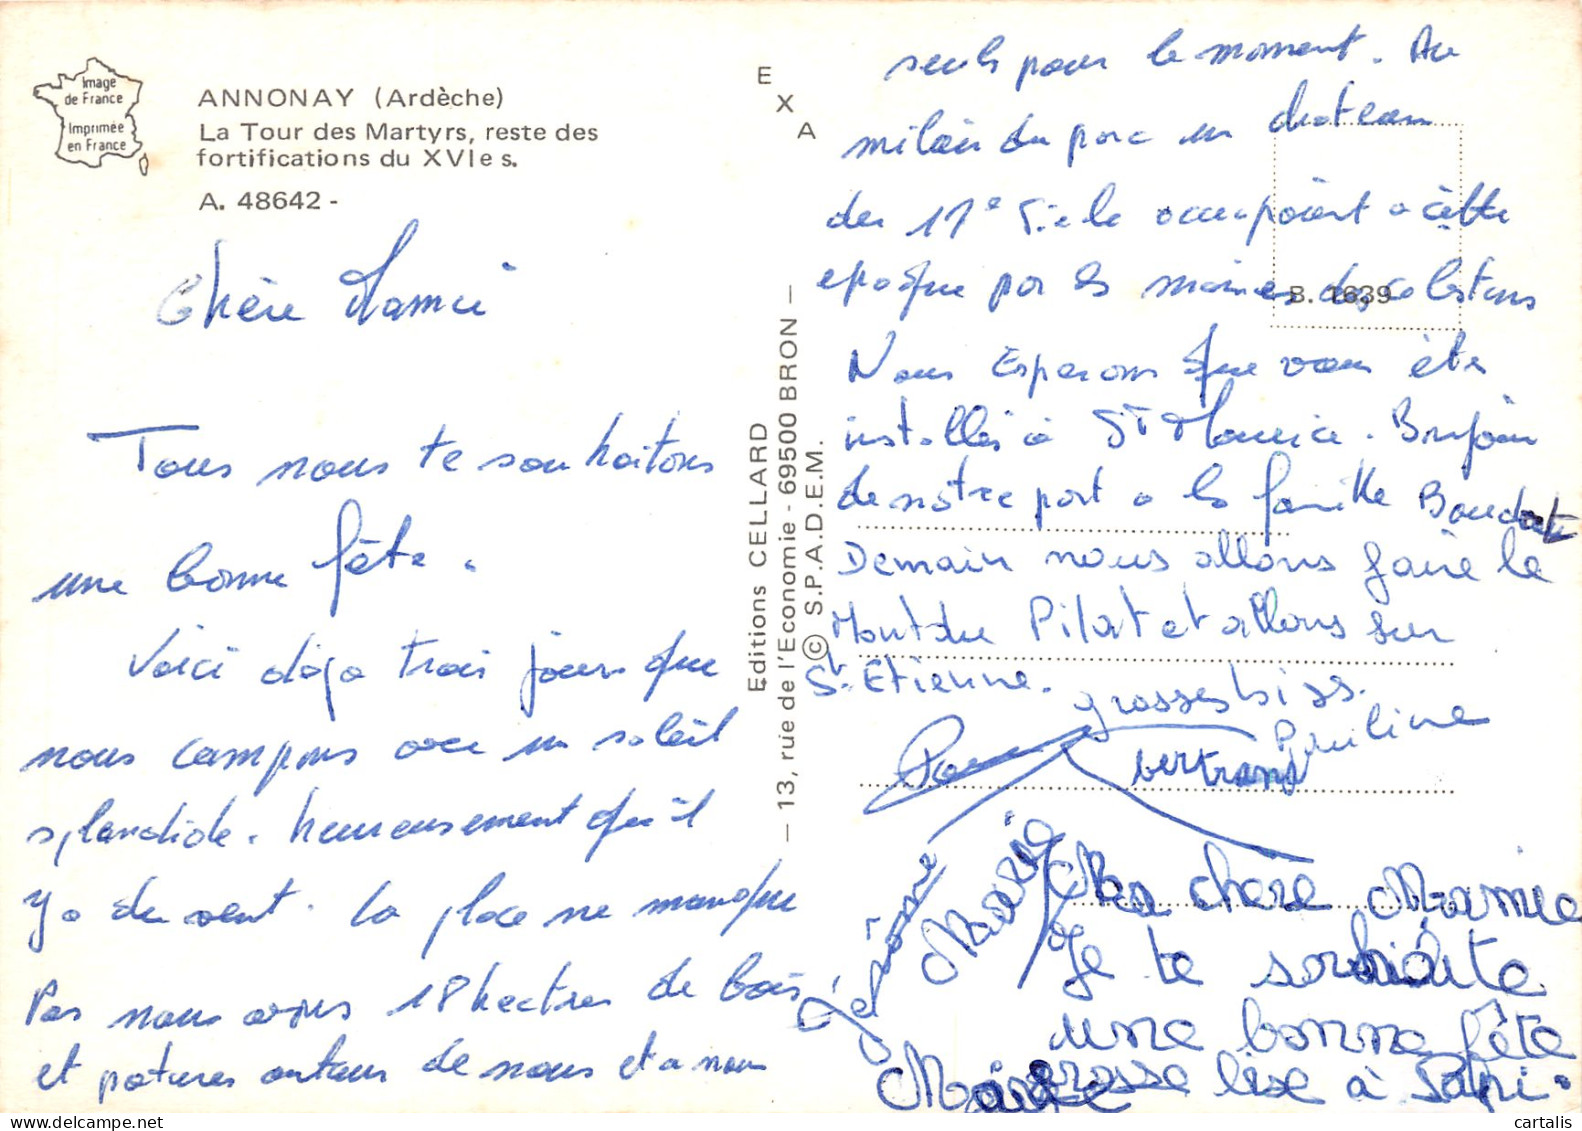 Image
de France
Imprimée
en France
ANNONAY (Ardèche)
La Tour des Martyrs, reste des
fortifications du XVIe s.
A. 48642 -
Chère Mamie
Tous nous te souhaitons
une bonne fête.
Voici déja trois jours que
nous campons avec un soleil
splendide. heureusement qu'il
y a du vent. La place ne manque
Pas nous avons 18 hectres de bois
et patures autour de nous et a nous
E
X
A
Editions CELLARD
— 13, rue de l'Economie - 69500 BRON —
© S.P.A.D.E.M.
B. 1639
seuls pour le moment. Au
milieu du parc un chateau
du 17e siècle occupaient a cette
epoque par les moines des celestins
Nous Esperons que vous êtes
installés à St Maurice. Bonjour
de notre part a la famille
Demain nous allons faire le
Mont du Pilat et allons sur
St. Etienne.
grosses biss.
Pauline
bertrand
Jérôme
Marie
Ma chere Mamie
Je te souhaite
une bonne fête
grosse bise à Papi.
Marie
cartalis